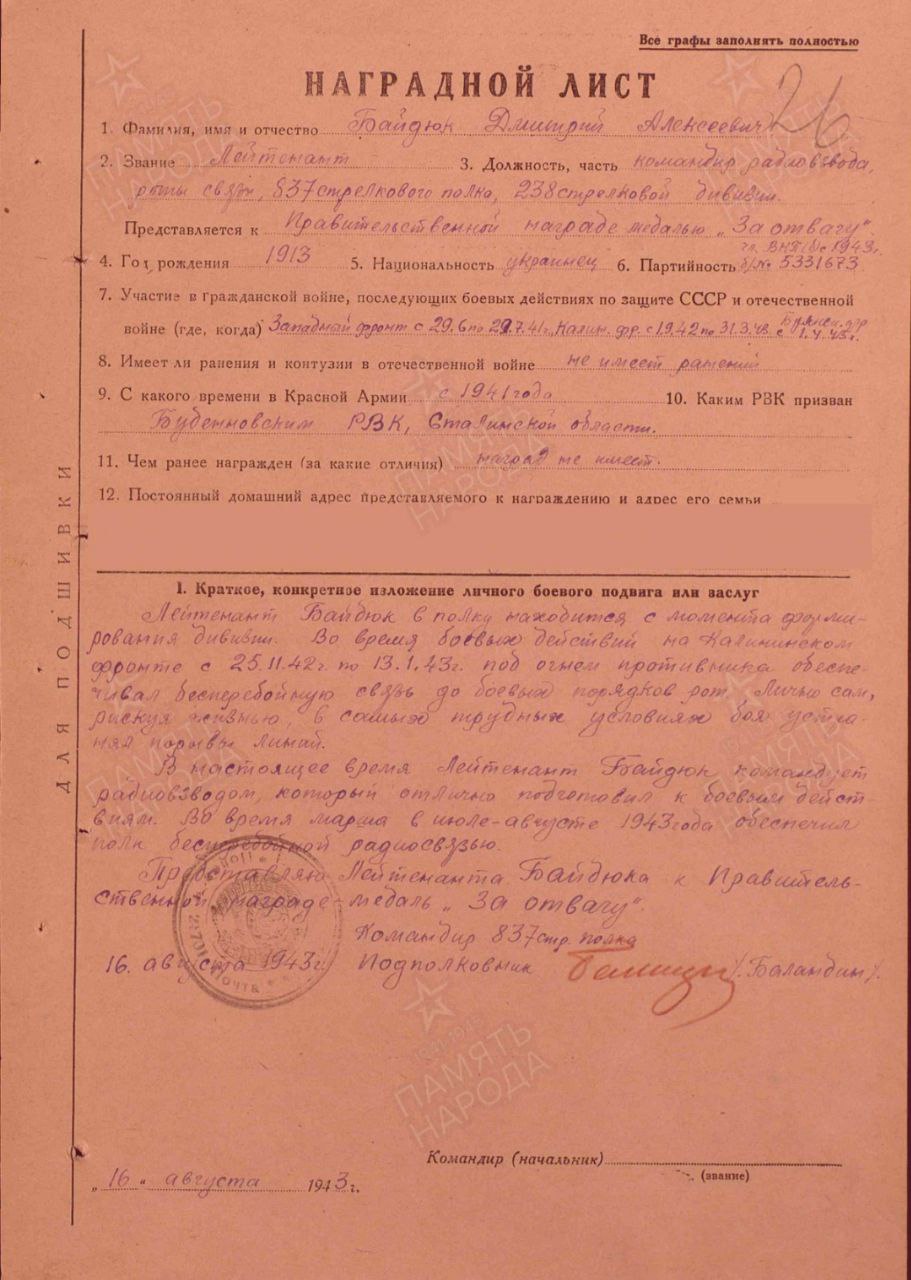 Все графы заполнять полностью
26
НАГРАДНОЙ ЛИСТ
1. Фамилия, имя и отчество Байдюк Дмитрий Алексеевич
2. Звание Лейтенант 3. Должность, часть командир радиовзвода,
роты связи, 837 стрелкового полка, 238 стрелковой дивизии.
Представляется к Правительственной награде медалью „За отвагу".
чл. ВКП(б) с 1943г.
4. Год рождения 1913 5. Национальность украинец 6. Партийность б/№ 5331673
7. Участие в гражданской войне, последующих боевых действиях по защите СССР и отечественной
войне (где, когда) Западный фронт с 29.6 по 29.7.41г., Калин. фр. с 1942 по 31.3.43. с 1.4.43г.
8. Имеет ли ранения и контузии в отечественной войне не имеет ранений
9. С какого времени в Красной Армии с 1941 года 10. Каким РВК призван
Буденновским РВК, Сталинской области.
11. Чем ранее награжден (за какие отличия) наград не имеет.
12. Постоянный домашний адрес представляемого к награждению и адрес его семьи
I. Краткое, конкретное изложение личного боевого подвига или заслуг
Лейтенант Байдюк в полку находится с момента форми-
рования дивизии. Во время боевых действий на Калининском
фронте с 25.11.42г. по 13.1.43г. под огнем противника обеспе-
чивал бесперебойную связь до боевых порядков рот. Лично сам,
рискуя жизнью, в самых трудных условиях боя устра-
нял порывы линий.
В настоящее время Лейтенант Байдюк командует
радиовзводом, который отлично подготовил к боевым дейст-
виям. Во время марша в июле-августе 1943 года обеспечил
полк бесперебойной радиосвязью.
Представляю Лейтенанта Байдюка к Правитель-
ственной награде-медаль „За отвагу".
Командир 837 стр. полка
16. августа 1943г. Подполковник /Баландин/.
Командир (начальник)
(звание)
„16" августа 1943г.
ДЛЯ ПОДШИВКИ
1941-1945
ПАМЯТЬ
НАРОДА